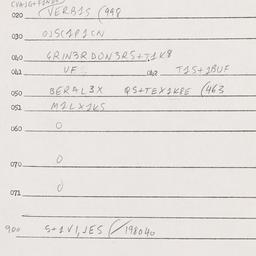 020 VERBIS (998
030 OJSC1P1CN
040 GRIN3RDON3RS+T1K8
041 VF 042 T1S+1BUF
050 BERAL3X QS+TEX1KPE (463
051 M2LX1KS
060 0
070 0
071 0
900 S+1V1,JES (/198040